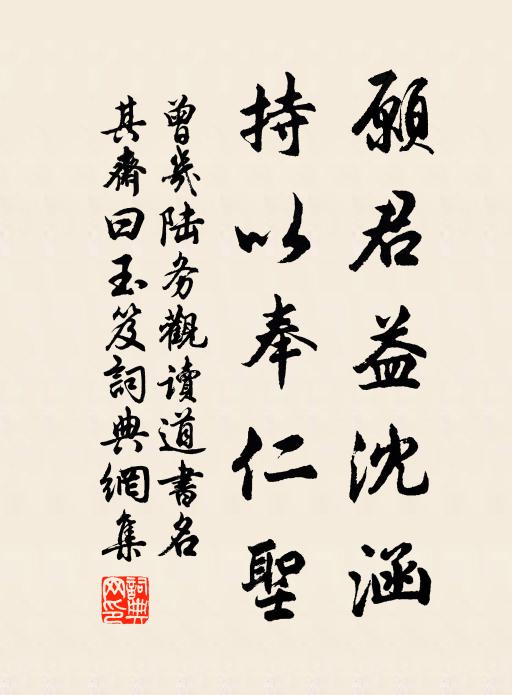 願君益沈涵
持以奉仁聖
曾幾陸務觀讀道書名
其齋曰玉笈詞典網集